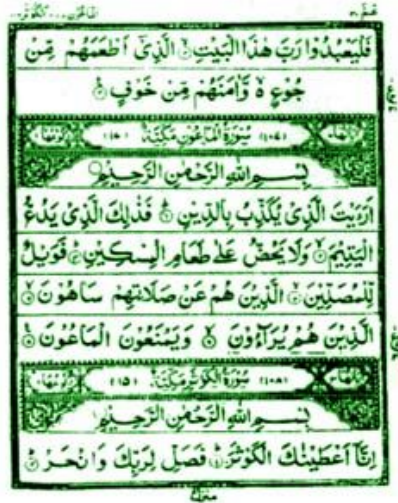 عمّ ٣٠ الماعون ١٠٧ الكوثر ١٠٨
فَلْيَعْبُدُوا رَبَّ هٰذَا الْبَيْتِ ۙ الَّذِيْٓ اَطْعَمَهُمْ مِّنْ
جُوْعٍ ۙ وَّاٰمَنَهُمْ مِّنْ خَوْفٍ ۠
(١٠٧) سُوْرَةُ الْمَاعُوْنِ مَكِّيَّةٌ (١٧)
بِسْمِ اللّٰهِ الرَّحْمٰنِ الرَّحِيْمِ
اَرَءَيْتَ الَّذِيْ يُكَذِّبُ بِالدِّيْنِ ۭ فَذٰلِكَ الَّذِيْ يَدُعُّ
الْيَتِيْمَ ۙ وَلَا يَحُضُّ عَلٰى طَعَامِ الْمِسْكِيْنِ ۭ فَوَيْلٌ
لِّلْمُصَلِّيْنَ ۙ الَّذِيْنَ هُمْ عَنْ صَلَاتِهِمْ سَاهُوْنَ ۙ
الَّذِيْنَ هُمْ يُرَآءُوْنَ ۙ وَيَمْنَعُوْنَ الْمَاعُوْنَ ۠
(١٠٨) سُوْرَةُ الْكَوْثَرِ مَكِّيَّةٌ (١٥)
بِسْمِ اللّٰهِ الرَّحْمٰنِ الرَّحِيْمِ
اِنَّآ اَعْطَيْنٰكَ الْكَوْثَرَ ۭ فَصَلِّ لِرَبِّكَ وَانْحَرْ ۭ